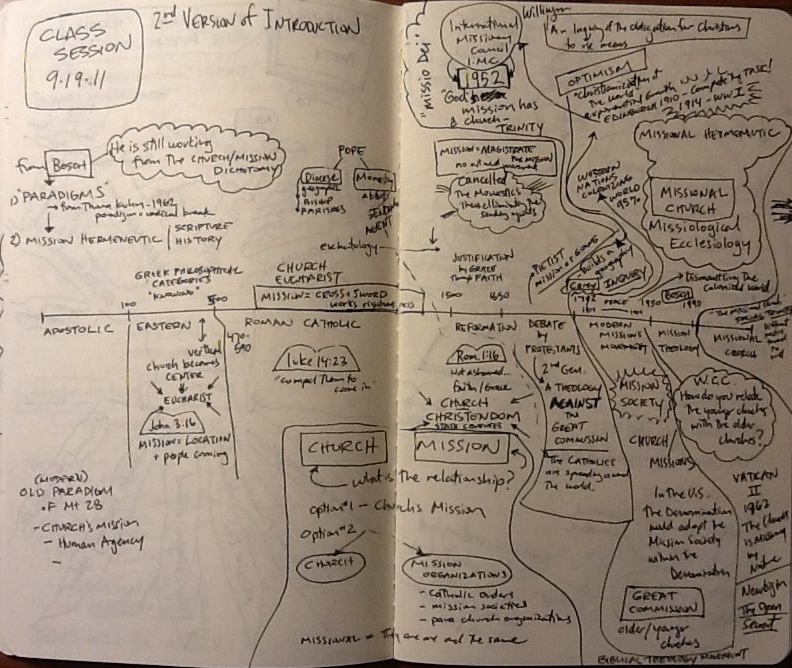 CLASS
SESSION
9.19.11
2nd VERSION OF INTRODUCTION
from Bosch
He is still working
from The CHURCH/MISSION
DICHOTOMY
1) "PARADIGMS"
from Thomas Kuhn - 1962
paradigm = radical break
2) MISSION HERMENEUTIC
SCRIPTURE
HISTORY
POPE
Diocese
geographic
BISHOP
PARISHES
Monastery
Abbot
SENDING
AGENT
eschatology
GREEK PHILOSOPHICAL
CATEGORIES
"KNOWING"
CHURCH
EUCHARIST
MISSION = CROSS + SWORD
works righteousness
100
500
APOSTOLIC
EASTERN
ROMAN CATHOLIC
470-
590
vertical
church becomes
CENTER
EUCHARIST
John 3:16
MISSION = LOCATION
+ people coming
Luke 14:23
"compel them to
come in"
(MODERN)
OLD PARADIGM
OF Mt 28
- CHURCH'S Mission
- Human Agency
-
"Missio Dei"
International
Missionary
Council
I.M.C.
1952
"God's
mission has
a church -
TRINITY
Willingen
"An Inquiry of the obligation for Christians
to use means
OPTIMISM
"Christianization of
the world"
exponential growth - Complete the TASK!
EDINBURGH 1910 - 1914 - WWI
MISSION = MAGISTRATE
Cancelled
The Monastics
thus eliminating the
sending agents
WESTERN
NATIONS
COLONIZING
WORLD
95%
MISSIONAL HERMENEUTIC
MISSIONAL
CHURCH
Missiological
Ecclesiology
JUSTIFICATION
by GRACE
through FAITH
PIETIST
mission as GOING
- builds a
geography
Carey
1792
INQUIRY
Dismantling The
Colonial world
Bosch
1500
1650
1950
1990
REFORMATION
DEBATE
by
PROTESTANTS
2nd Gen.
A THEOLOGY
AGAINST
the
GREAT
COMMISSION
The CATHOLICS
are spreading around
the world.
MODERN
MISSIONS
MOVEMENT
MISSION
THEOLOGY
MISSIONAL
CHURCH
Rom. 1:16
Not Ashamed...
faith/Grace
CHURCH
CHRISTENDOM
STATE CHURCHES
MISSION
SOCIETY
W.C.C.
How do you relate
the younger churches
with the older
churches?
CHURCH
MISSION
what is the relationship?
option #1 - Church's Mission
option #2
CHURCH
MISSION
ORGANIZATIONS
- catholic orders
- mission societies
- para church organizations
MISSIONAL = They are not the same
CHURCH
MISSIONS
In the U.S.
The Denomination
would adopt the
Mission Society
within the
Denomination
GREAT
COMMISSION
older/younger
churches
BIBLICAL THEOLOGY MOVEMENT
VATICAN
II
1962
The Church
is Missionary
by
Nature
Newbigin
The Open
Secret